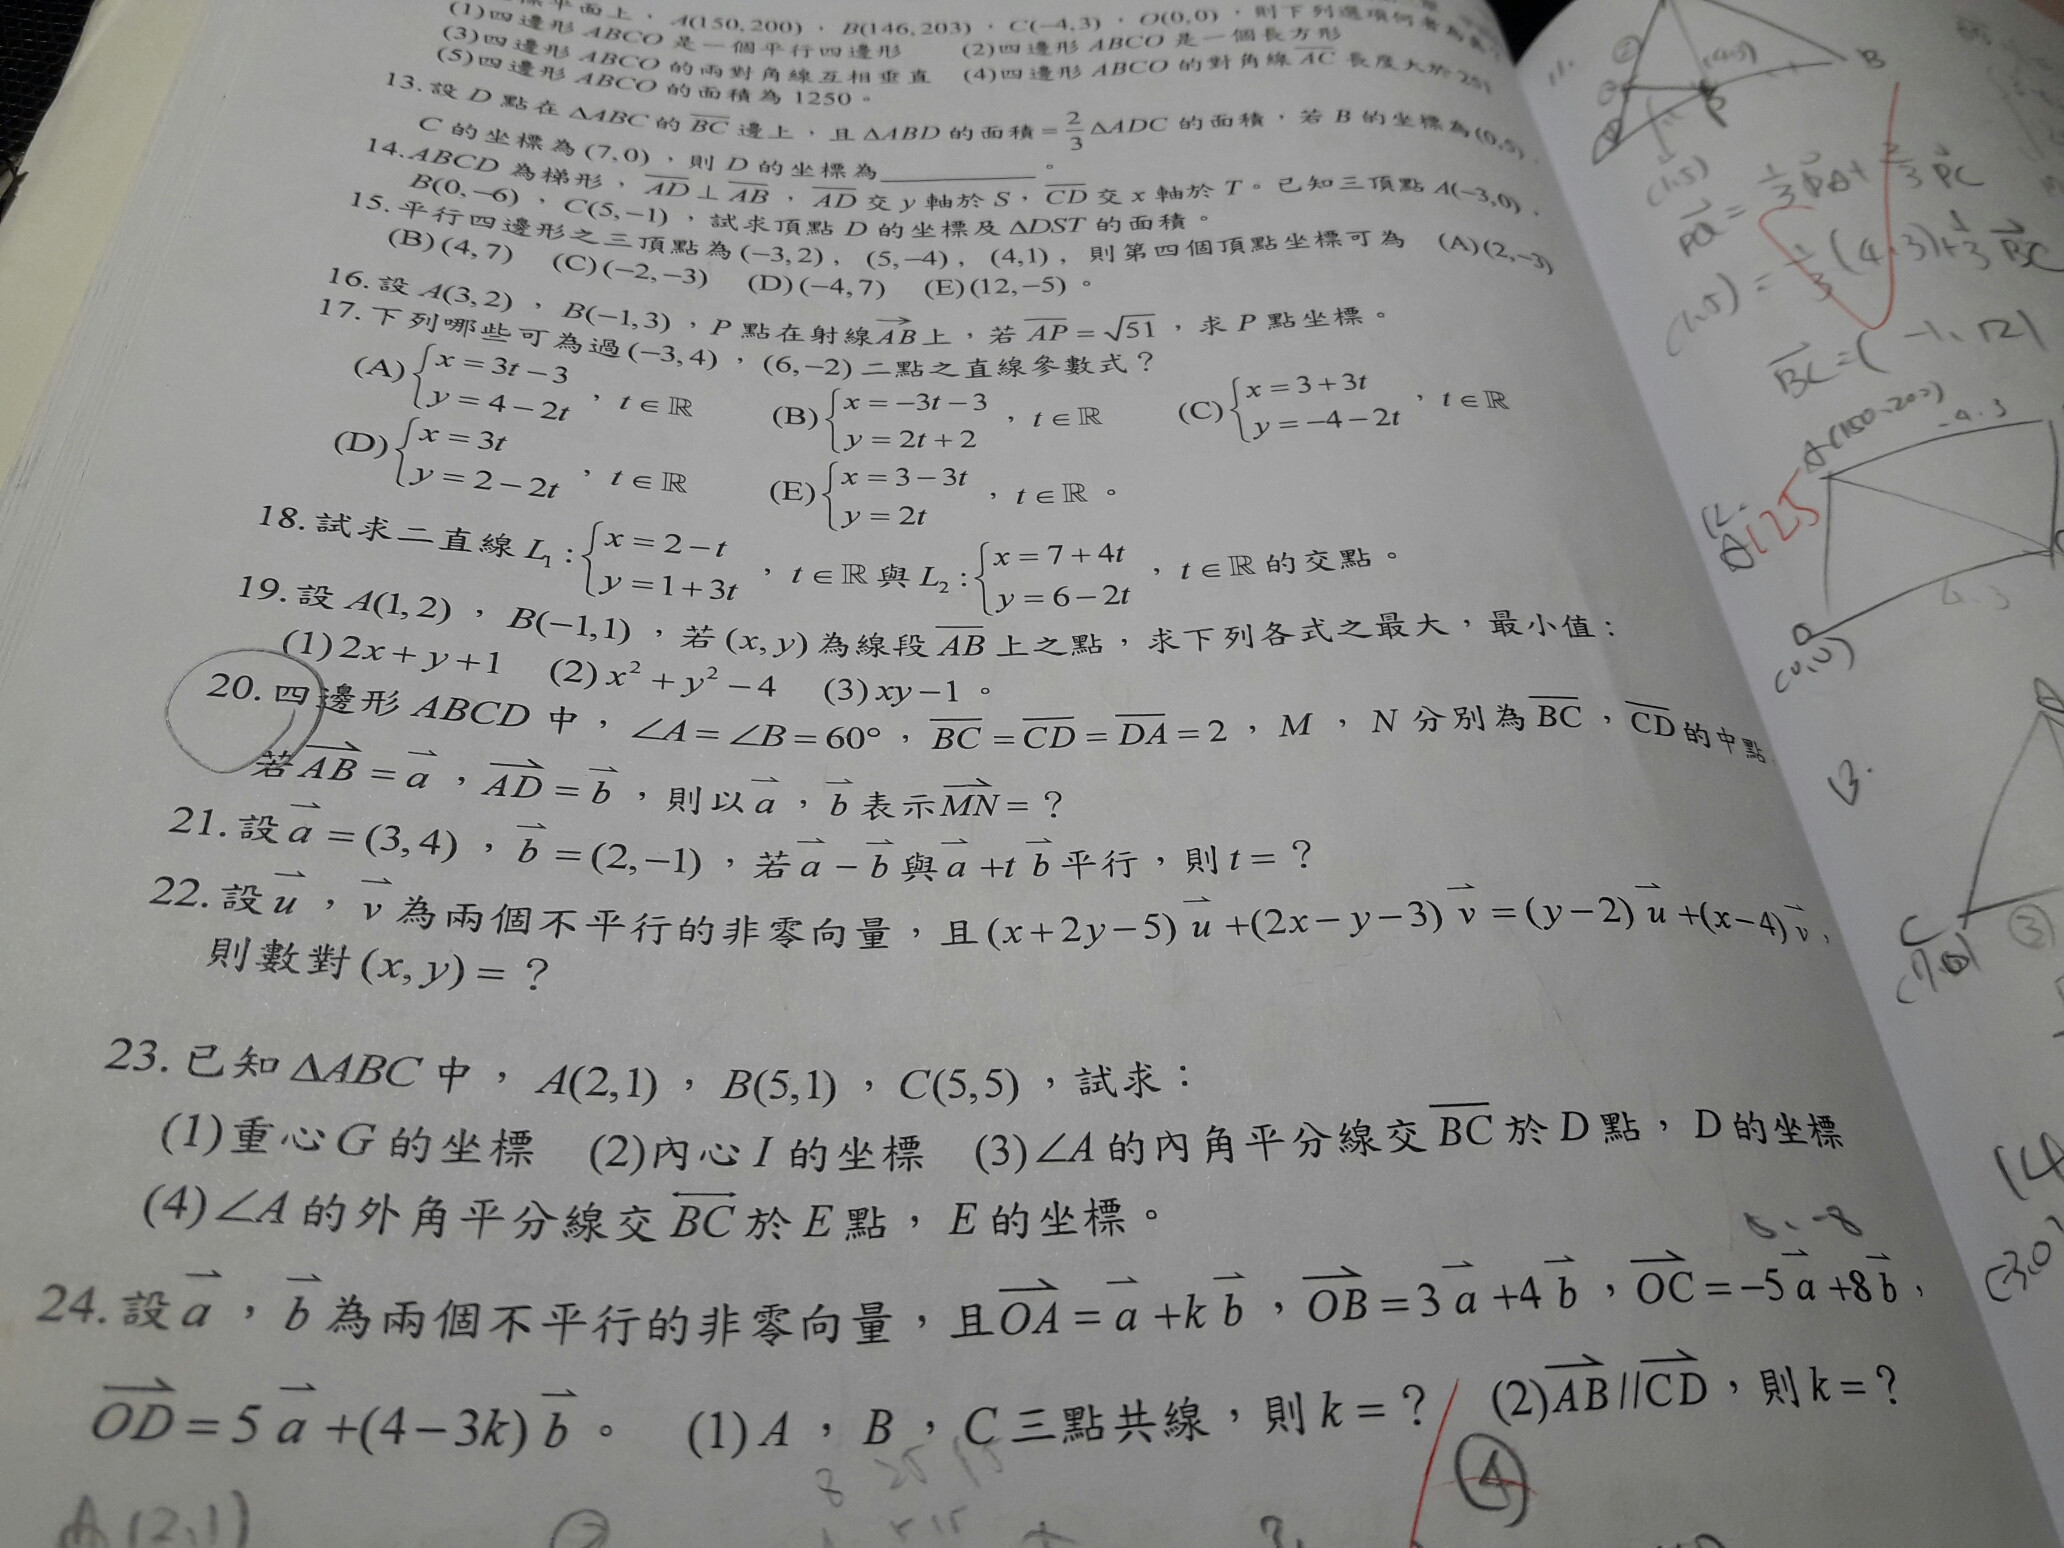 標平面上，A(150,200)，B(146,203)，C(-4,3)，O(0,0)，則下列選項何者為
(1)四邊形ABCO是一個平行四邊形 (2)四邊形ABCO是一個長方形
(3)四邊形ABCO的兩對角線互相垂直 (4)四邊形ABCO的對角線AC̅長度大於251
(5)四邊形ABCO的面積為1250。
13.設D點在ΔABC的B̅C̅邊上，且ΔABD的面積=2/3ΔADC的面積，若B的坐標為(0,5)，
C的坐標為(7,0)，則D的坐標為__________。
14.ABCD為梯形，A̅D̅⊥A̅B̅，A̅D̅交y軸於S，C̅D̅交x軸於T。已知三頂點A(-3,0)，
B(0,-6)，C(5,-1)，試求頂點D的坐標及ΔDST的面積。
15.平行四邊形之三頂點為(-3,2)，(5,-4)，(4,1)，則第四個頂點坐標可為 (A)(2,-3)
(B)(4,7) (C)(-2,-3) (D)(-4,7) (E)(12,-5)。
16.設A(3,2)，B(-1,3)，P點在射線AB→上，若A̅P̅=√51，求P點坐標。
17.下列哪些可為過(-3,4)，(6,-2)二點之直線參數式？
(A){x=3t-3, y=4-2t，t∈ℝ (B){x=-3t-3, y=2t+2，t∈ℝ (C){x=3+3t, y=-4-2t，t∈ℝ
(D){x=3t, y=2-2t，t∈ℝ (E){x=3-3t, y=2t，t∈ℝ。
18.試求二直線L₁:{x=2-t, y=1+3t，t∈ℝ與L₂:{x=7+4t, y=6-2t，t∈ℝ的交點。
19.設A(1,2)，B(-1,1)，若(x,y)為線段A̅B̅上之點，求下列各式之最大，最小值：
(1)2x+y+1 (2)x²+y²-4 (3)xy-1。
20.四邊形ABCD中，∠A=∠B=60°，B̅C̅=C̅D̅=D̅A̅=2，M，N分別為B̅C̅，C̅D̅的中點
若AB⇀=a⇀，AD⇀=b⇀，則以a⇀，b⇀表示MN⇀=？
21.設a⇀=(3,4)，b⇀=(2,-1)，若a⇀-b⇀與a⇀+t b⇀平行，則t=？
22.設u⇀，v⇀為兩個不平行的非零向量，且(x+2y-5)u⇀+(2x-y-3)v⇀=(y-2)u⇀+(x-4)v⇀，
則數對(x,y)=？
23.已知ΔABC中，A(2,1)，B(5,1)，C(5,5)，試求：
(1)重心G的坐標 (2)內心I的坐標 (3)∠A的內角平分線交B̅C̅於D點，D的坐標
(4)∠A的外角平分線交BC↔於E點，E的坐標。
5、-8
24.設a⇀，b⇀為兩個不平行的非零向量，且OA⇀=a⇀+k b⇀，OB⇀=3a⇀+4b⇀，OC⇀=-5a⇀+8b⇀，
OD⇀=5a⇀+(4-3k)b⇀。 (1)A，B，C三點共線，則k=？ (2)AB⇀//CD⇀，則k=？
4
A(2,1)
11.
B
(4,3)
(1,5)
PQ⇀=1/3PA⇀+2/3PC⇀
(1,5)=1/3(4,3)+1/3BC⇀
BC⇀=(-1,12)
A(150,200)
-4,3
12.
125
4,3
O
(0,0)
13.
C
(7,0)
3
(-3,0)